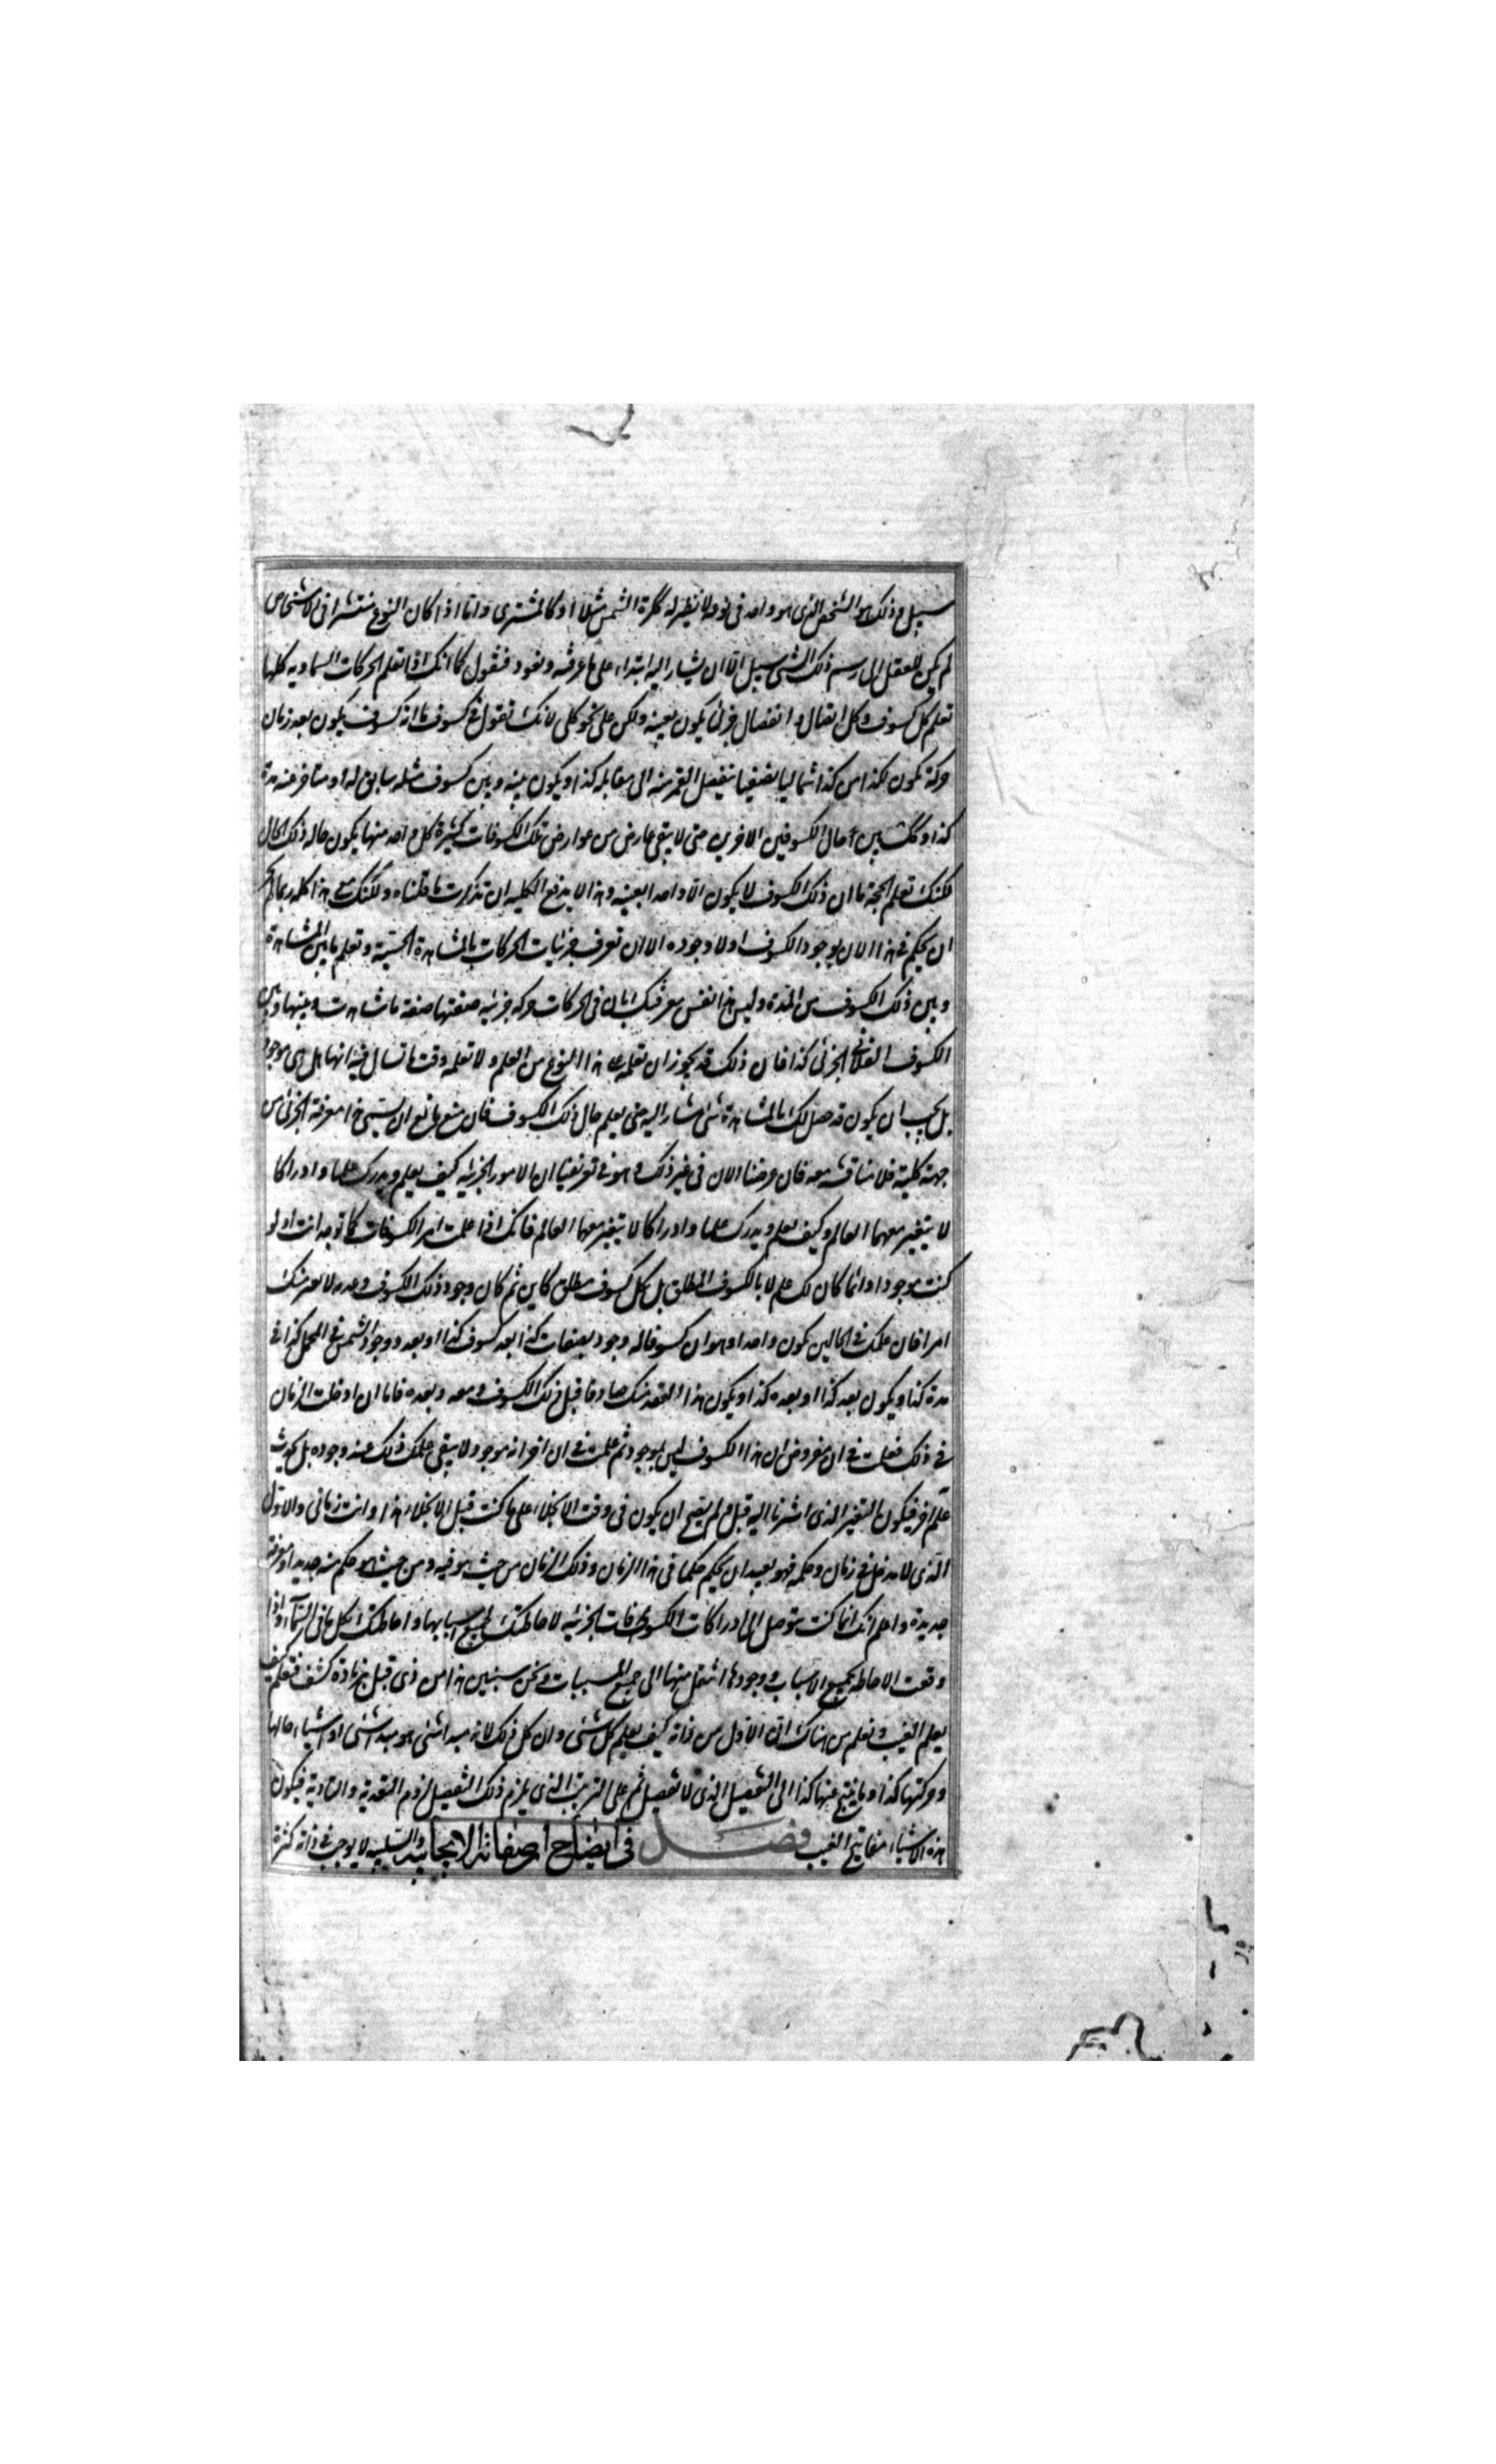 سبيل وذلك هو الشخص الذى هو واحد فى نوعه لا نظير له ككرة الشمس مثلا او كالمشترى واما اذا كان النوع منتشرا فى الاشخاص
لم يكن للعقل الى رسم ذلك الشئ سبيل الا ان يشار اليه ابتداء على ما عرفته ونعود فنقول كما انك اذا تعلم الحركات السماويه كلها
تعلم كل كسوف وكل اتصال وانفصال جزئى يكون بعينه ولكن على نحو كلى لانك تقول فى كسوف ما انه كسوف يكون بعد زمان
حركة تكون لكذا من كذا شماليا نصفيا ينفصل القمر منه الى مقابله كذا ويكون بينه وبين كسوف مثله سابق له او متاخر عنه مدة
كذا وكذلك بين حال الكسوفين الاخرين حتى لا يبقى عارض من عوارض تلك الكسوفات كثيرة كل واحد منها يكون حاله ذلك الحال
لكنك تعلم لحجة ما ان ذلك الكسوف لا يكون الا واحدا بعينه وهذا لا يدفع الكليه ان تذكرت ما قلناه ولكنك مع هذا كله ربما لم يجز
ان يحكم فى هذا الان بوجود الكسوف او لا وجوده الا ان تعرف جزئيات الحركات بالمشاهدة الحسية وتعلم ما بين المشاهدة
وبين ذلك الكسوف من المدة وليس هذا نفس معرفتك بان فى الحركات حركه جزئيه صفتها صفة ما شاهدت وبينها وبين
الكسوف الفلانى الجزئى كذا فان ذلك قد يجوز ان تعلمه على هذا النوع من العلم ولا تعلمه وقت ما تسال فيه انها هل هى موجود
بل يجب ان يكون قد حصل لك بالمشاهدة شئ مشار اليه حتى يعلم حال ذلك الكسوف فان منع مانع ان يسمى هذا معرفة الجزئى من
جهة كلية فلا مناقشه معه فان غرضنا الان فى غير ذلك وهو فى تعريفنا ان الامور الجزئيه كيف يعلم ويدرك علما وادراكا
لا يتغير معهما العالم وكيف يعلم ويدرك علما وادراكا لا يتغير معها العالم فانك اذا علمت امر الكسوفات كما توجد انت او لو
كنت موجودا دائما كان لك علم لا بالكسوف المطلق بل بكل كسوف مطلق كاين ثم كان وجود ذلك الكسوف وعدمه لا يغير منك
امرا فان علمك فى الحالين يكون واحدا وهو ان كسوفا له وجود بصفات كذا بعد كسوف كذا او بعد وجود الشمس فى الحمل كذا فى
مدة كذا ويكون بعد كذا او بعده كذا ويكون هذا العقد منك صادقا قبل ذلك الكسوف ومعه وبعده فاما ان ادخلت الزمان
فى ذلك فعلت فى ان مفروض ان هذا الكسوف ليس بموجود ثم علمت فى ان اخر انه موجود لا يبقى علمك ذلك عند وجوده بل يحدث
علم اخر فيكون التغير الذى اشرنا اليه قبل ولم يصح ان يكون فى وقت الانجلاء على ما كنت قبل الانجلاء هذا وانت زمانى والاول
الذى لا يدخل فى زمان وحكمه فهو بعيد ان يحكم حكما فى هذا الزمان وذلك الزمان من حيث هو فيه ومن حيث هو حكم منه جديد او معرفة
جديدة واعلم انك انما كنت تتوصل الى ادراكات الكسوفات الجزئيه لاحاطتك بجميع اسبابها واحاطتك بكل ما فى السماء واذا
وقعت الاحاطه بجميع الاسباب ووجودها انتقل منها الى جميع المسببات ونحن سنبين هذا من ذى قبل بزيادة كشف فتعلم كيف
يعلم الغيب وتعلم من هناك ان الاول من ذاته كيف يعلم كل شئ وان كل ذلك لانه مبدا شئ هو مبدا شئ او اشياء حالها
وحركتها كذا وما ينتج عنها كذا الى التفصيل الذى لا تفصيل ثم على الترتيب الذى يلزم ذلك التفصيل لزوم التعدية والتادية فيكون
هذه الاشياء مفاتيح الغيب فصل فى ايضاح ان صفاته الايجابيه والسلبيه لا يوجب فى ذاته كثرة